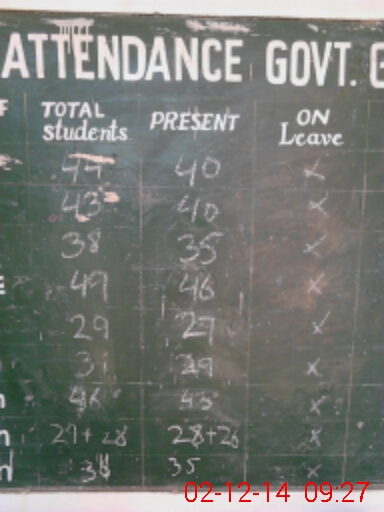 ATTENDANCE GOVT. G
TOTAL students PRESENT ON Leave
44 40 x
43 40 x
38 35 x
49 46 x
29 27 x
31 29 x
46 45 x
29+28 28+26 x
38 35 x
02-12-14 09:27